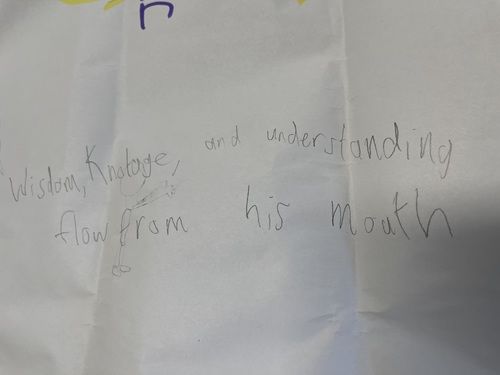 n
Wisdom, Knolage, and understanding
flow from his mouth